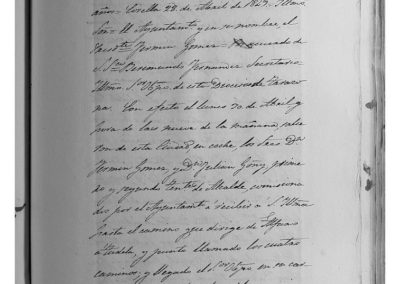 años = Corella 28 de Abril de 1849. Ylltmo
Sor = El Ayuntamto y en su nombre el
Presidte Fermin Gomez = Acuerdo de
S. Sría Veremundo Fernandez Secretario
Yltmo Sor Obpo de esta Diocesis de Tarazo
na. Con efecto el lunes 30 de Abril, y
hora de las nueve de la mañana, salie
ron de esta Ciudad en coche, los Sres Dn
Fermin Gomez, y Dn Julian Goñi, prime
ro y segundo Tente de Alcalde, comisiona
dos por el Ayuntamto á recibir á S. Yltma
hasta el camino que dirige de Alfaro
á Tudela, y punto llamado los cuatro
caminos, y llegado el Sor Obpo en su car